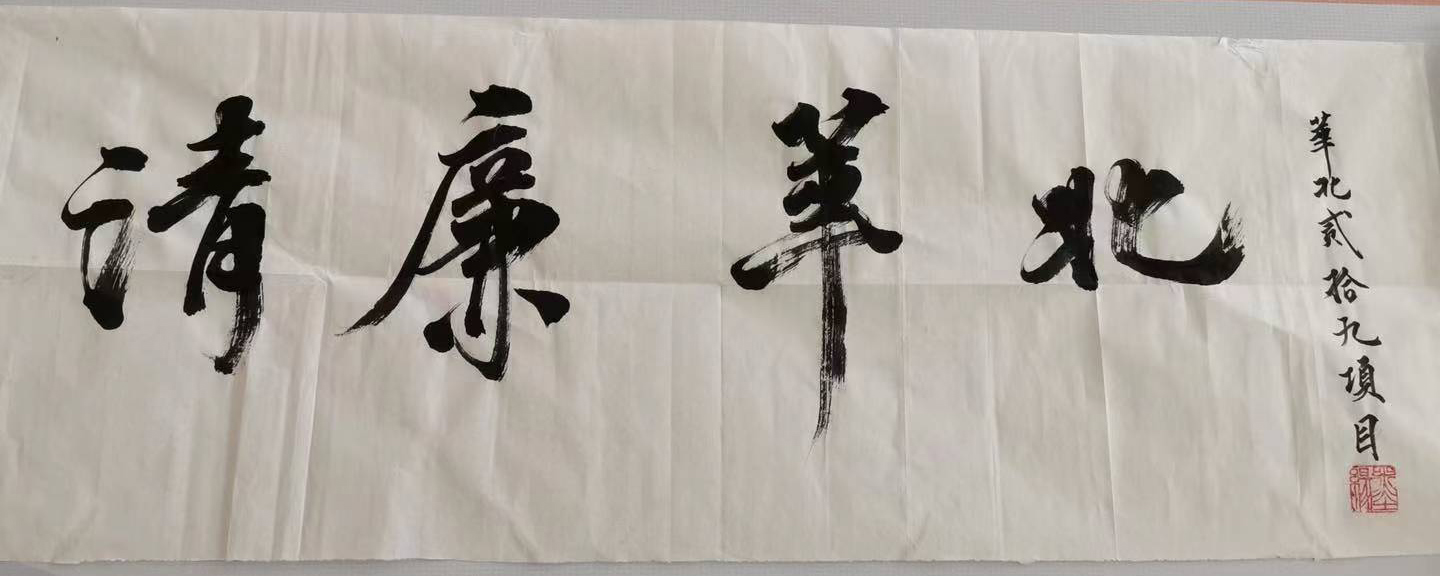 清廉華北
華北貳拾九項目